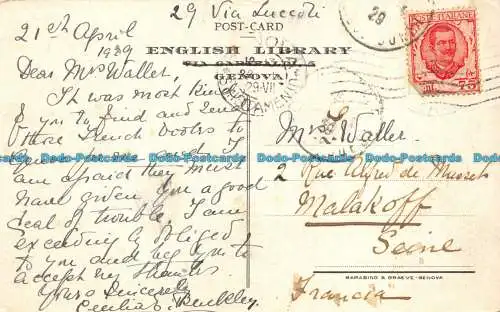 29 Via Luccoli
POST-CARD
ENGLISH LIBRARY
VIA GARIBALDI
GENOVA
21st April
1929
Dear Mrs Waller,
It was most kind
of you to find and send
those French books to
I
am afraid they must
have given you a good
deal of trouble. I am
exceedingly obliged
to you and beg you to
accept my thanks.
Yours sincerely
Cecilia Bulkley.
POSTE ITALIANE
75
29
Mrs Waller
2 Rue Alfred de Musset
Malakoff
Seine
Francia
BARABINO & GRAEVE-GENOVA
Dodo-Postcards.com